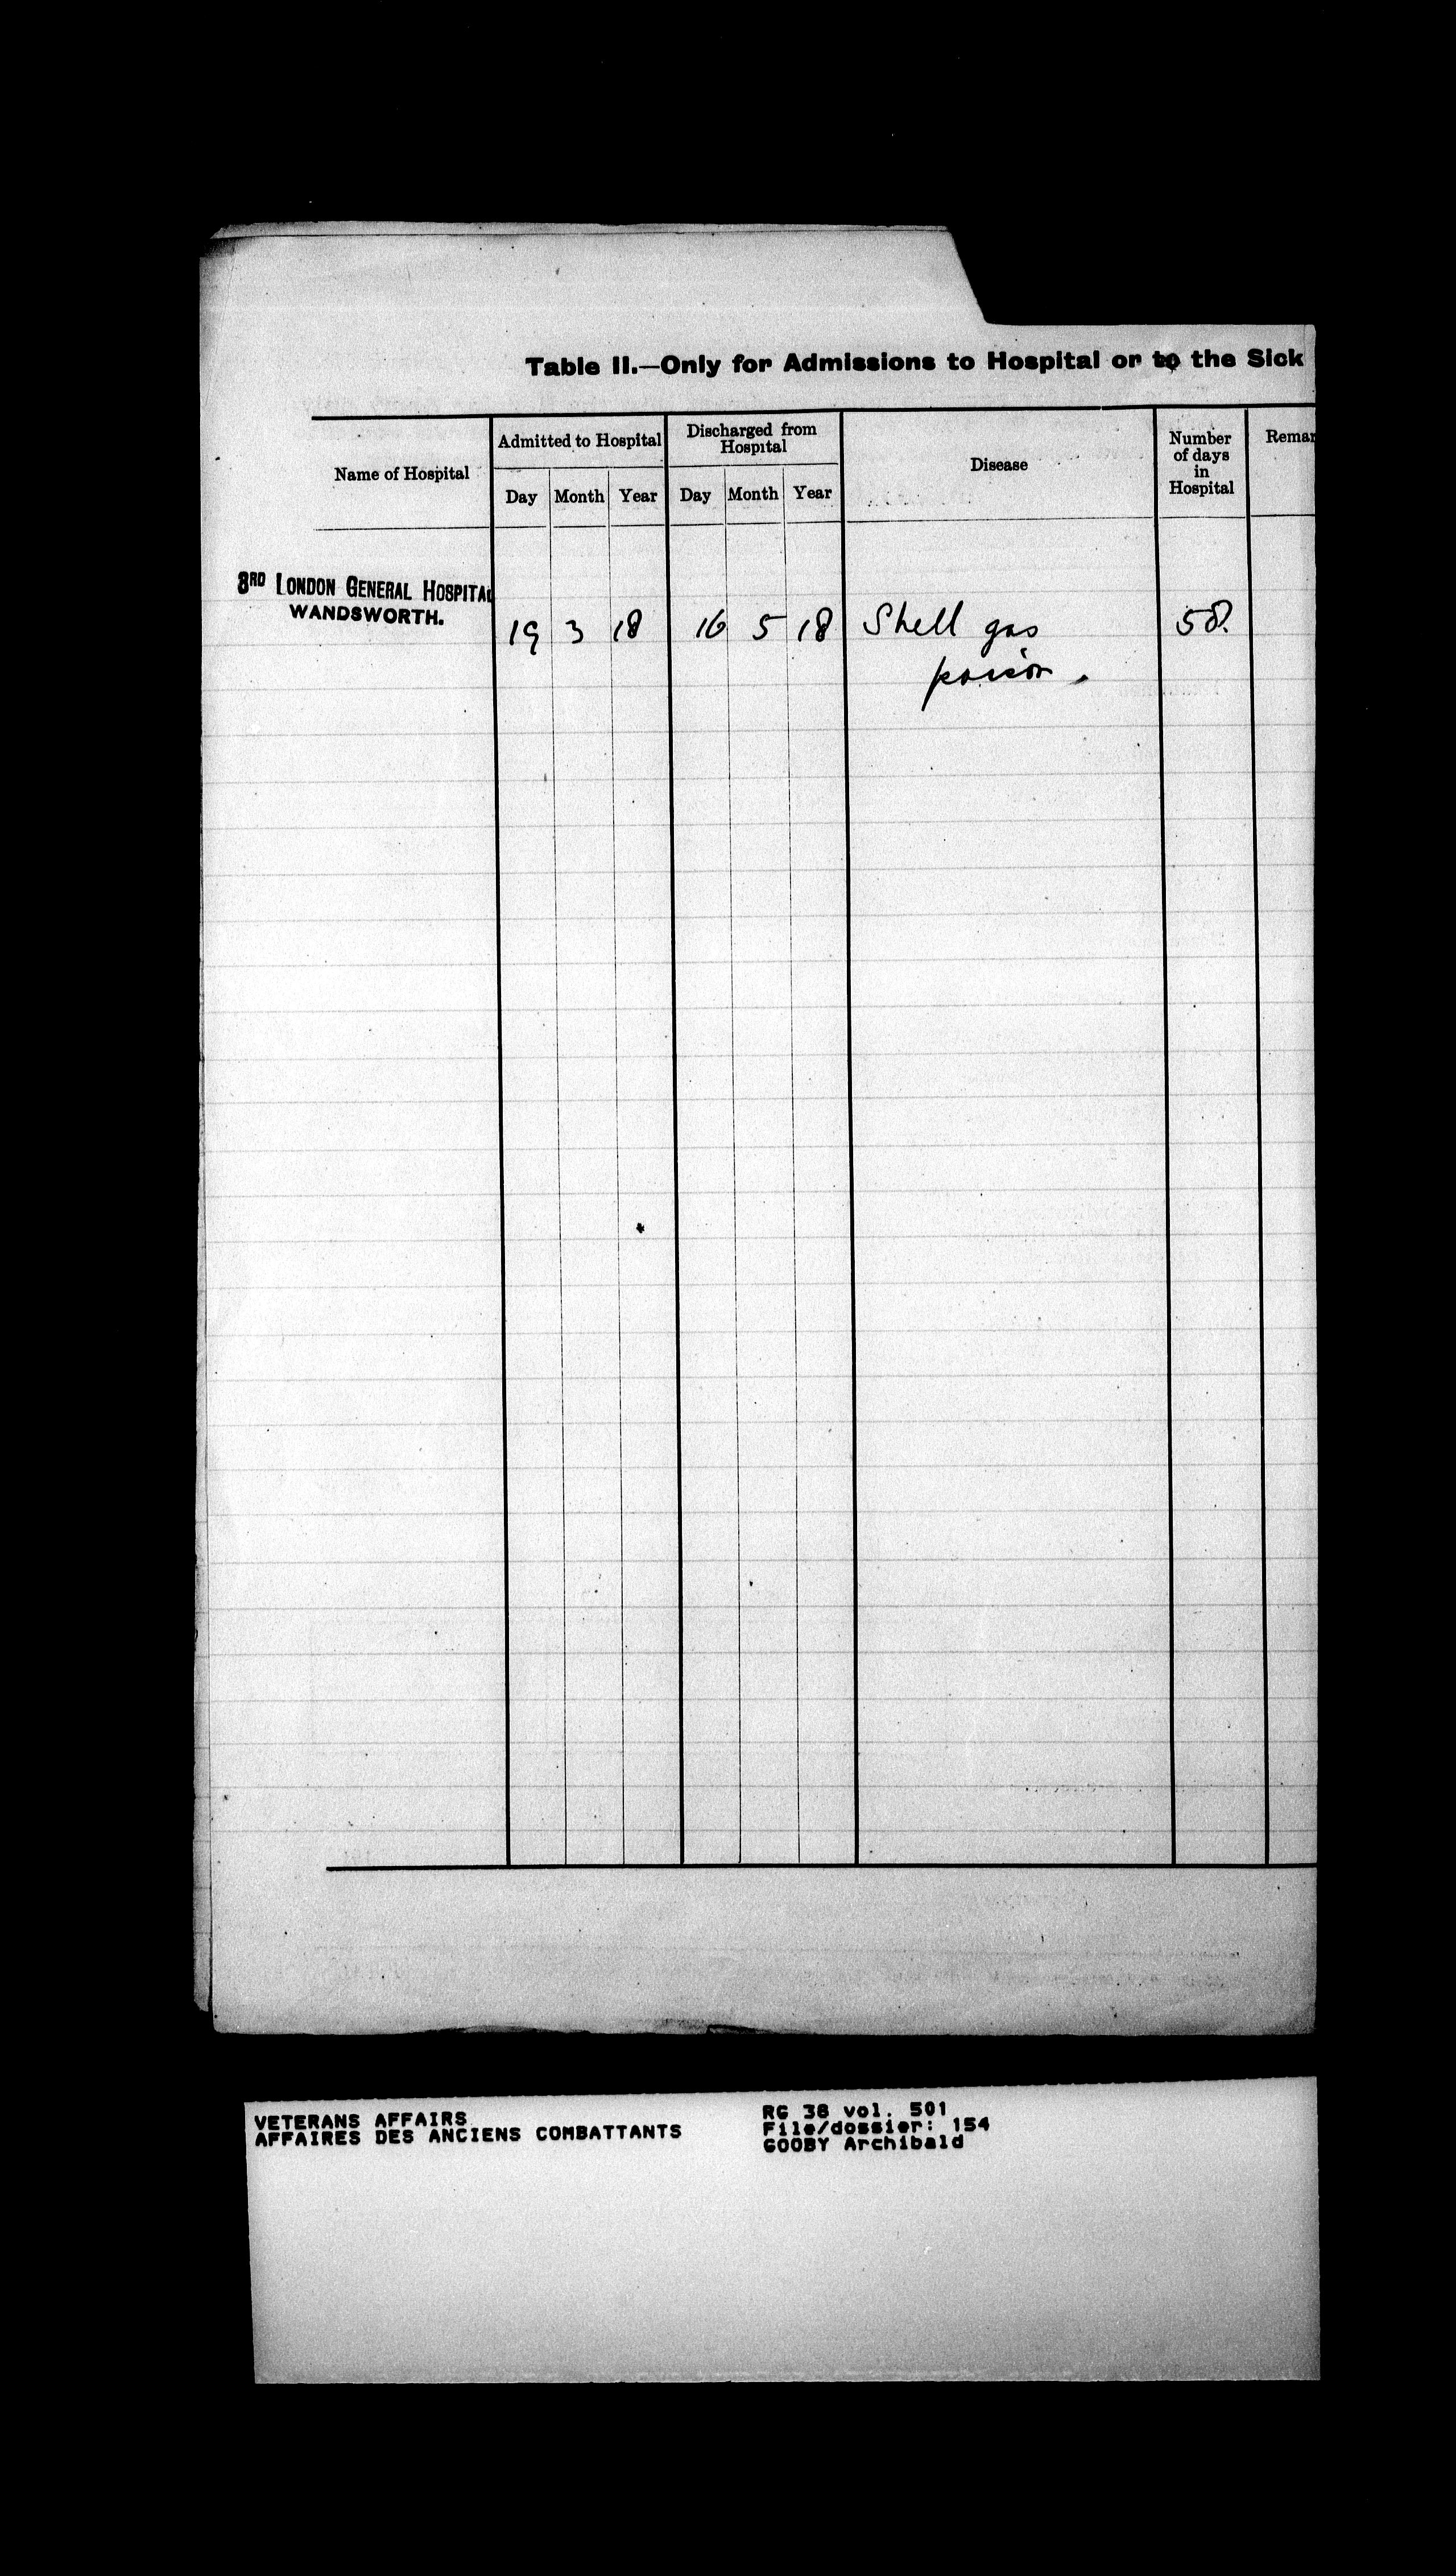 Table II.—Only for Admissions to Hospital or to the Sick
Name of Hospital
Admitted to Hospital
Day Month Year
Discharged from
Hospital
Day Month Year
Disease
Number
of days
in
Hospital
Remar
3RD LONDON GENERAL HOSPITAL
WANDSWORTH.
19 3 18 16 5 18 Shell gas 58.
poison.
VETERANS AFFAIRS
AFFAIRES DES ANCIENS COMBATTANTS
RG 38 vol. 501
File/dossier: 154
GOOBY Archibald